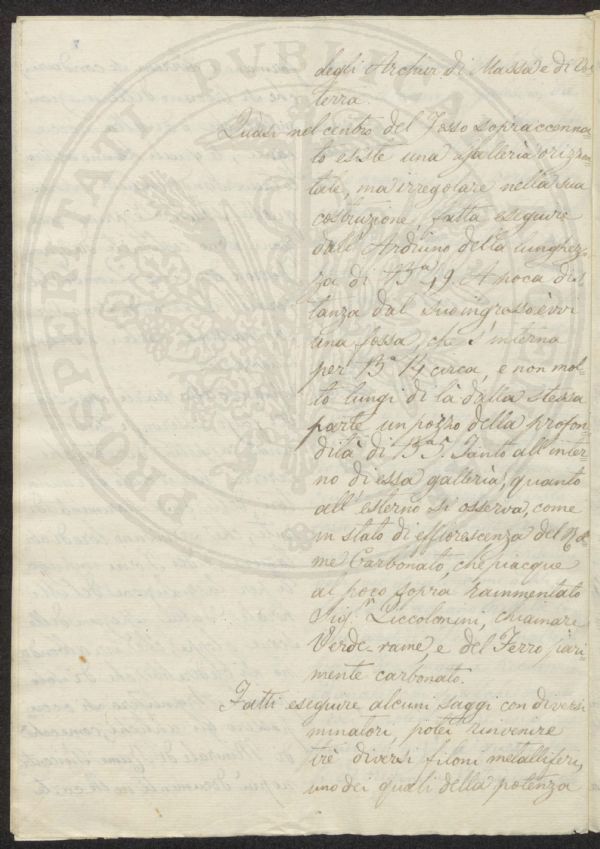 degli Archivi di Massa e di Vol
terra.
Quasi nel centro del Fosso sopraccenna
to esiste una Galleria orizzon
tale, ma irregolare nella sua
costruzione, fatta eseguire
dall' Arduino della lunghez-
za di B.a 49. A poca dis
tanza dal suo ingresso èvvi
una fossa, che s' interna
per B.a 14 circa, e non mol-
to lungi di là dalla stessa
parte un pozzo della profon-
dità di B.a 5. Tanto all' inter-
no di essa galleria, quanto
all' esterno si osserva, come
in stato di efflorescenza del Ra
me Carbonato, che piacque
al poco sopra rammentato
Sig.r Piccolomini, chiamare
Verde-rame, e del Ferro pari
mente carbonato.
Fatti eseguire alcuni saggi con diversi
minatori, potei rinvenire
trè diversi filoni metalliferi,
uno dei quali della potenza
PROSPERITATI PUBLICAE